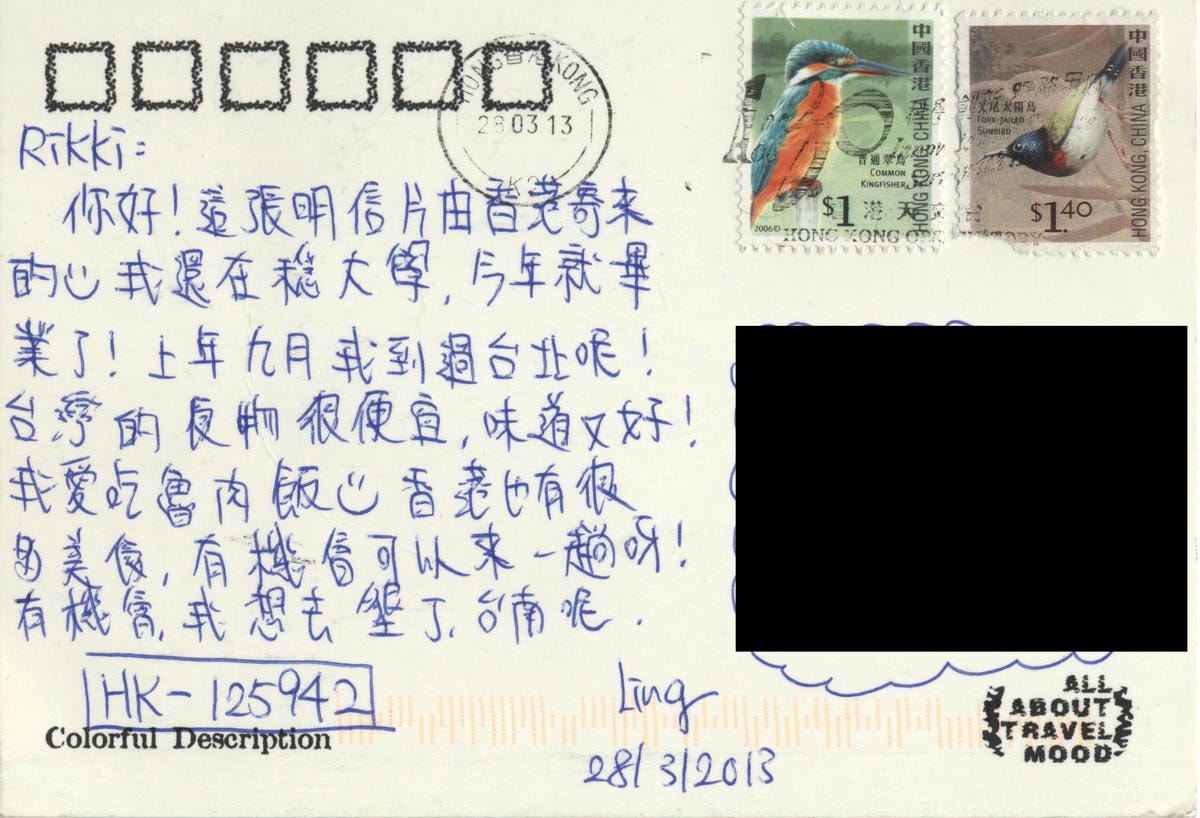 HONG 香港 KONG
28 03 13
中國香港
HONG KONG, CHINA
普通翠鳥
COMMON
KINGFISHER
$1
2006©
中國香港
HONG KONG, CHINA
叉尾太陽鳥
FORK-TAILED
SUNBIRD
$1.40
港 天文台
HONG KONG OBS
Rikki:
你好！這張明信片由香港寄來
的☺我還在穩大學，今年就畢
業了！上年九月我到過台北呢！
台灣的食物很便宜，味道又好！
我愛吃魯肉飯☺香港也有很
多美食，有機會可以來一趟呀！
有機會，我想去墾丁，台南呢．
HK-125942
Ling
28/3/2013
Colorful Description
ALL
ABOUT
TRAVEL
MOOD